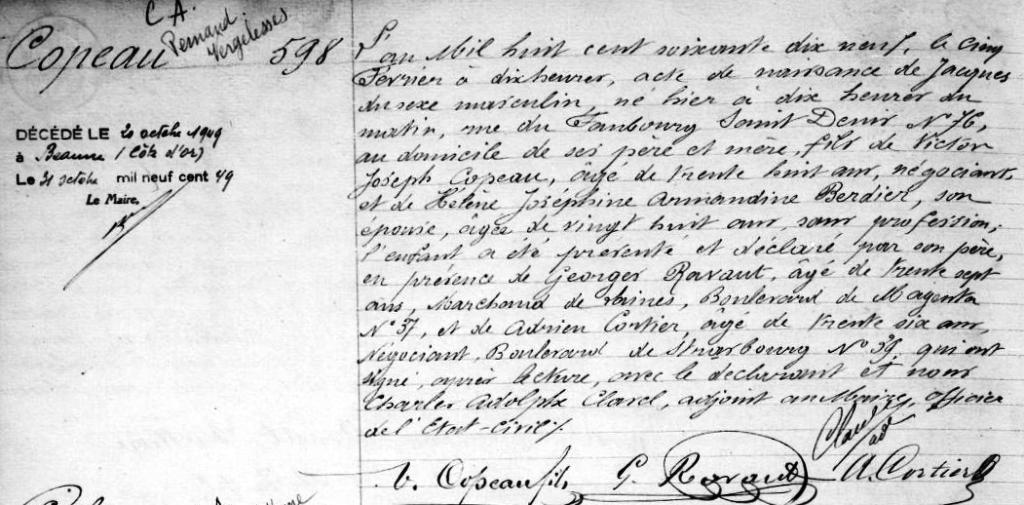 C A.
Pernand
Vergelesses
Copeau 598
DÉCÉDÉ LE 20 octobre 1949
à Beaune (Côte d'or)
Le 21 octobre mil neuf cent 49
Le Maire,
L'an Mil huit cent soixante dix neuf, le cinq
Février à dix heures, acte de naissance de Jacques
du sexe masculin, né hier à dix heures du
matin, rue du Faubourg Saint Denis N° 76,
au domicile de ses père et mère, fils de Victor
Joseph Copeau, âgé de trente huit ans, négociant,
et de Hélène Joséphine Armandine Berdier, son
épouse, âgée de vingt huit ans, sans profession;
l'enfant a été présenté et déclaré par son père,
en présence de Georges Ravaut, âgé de trente sept
ans, Marchand de laines, Boulevard de Magenta
N° 37, et de Adrien Cortier, âgé de trente six ans,
Négociant, Boulevard de Strasbourg N° 39, qui ont
signé, après lecture, avec le déclarant et nous
Charles Adolphe Clarel, adjoint au Maire, officier
de l'Etat-Civil ./.
V. Copeau fils G. Ravaut A. Cortier